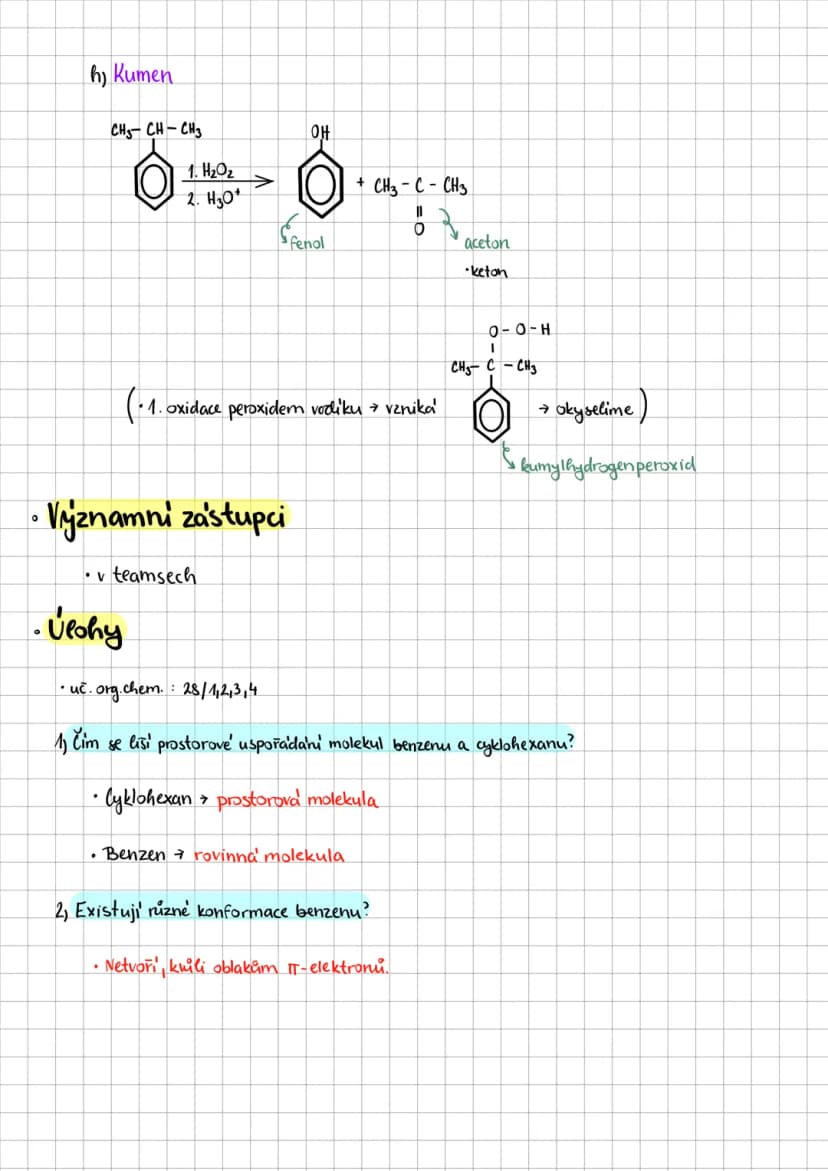 h) Kumen
CH3- CH - CH3
OH
1. H2O2
2. H3O+
+ CH3 - C - CH3
O
fenol
aceton
•keton
O - O - H
CH3- C - CH3
(•1. oxidace peroxidem vodíku → vzniká → okyselíme)
kumylhydrogenperoxid
• Významní zástupci
• v teamsech
• Úlohy
• uč. org.chem. : 28/1,2,3,4
1) Čím se liší prostorové uspořádání molekul benzenu a cyklohexanu?
• Cyklohexan → prostorová molekula
• Benzen → rovinná molekula
2) Existují různé konformace benzenu?
• Netvoří, kvůli oblakům π-elektronů.